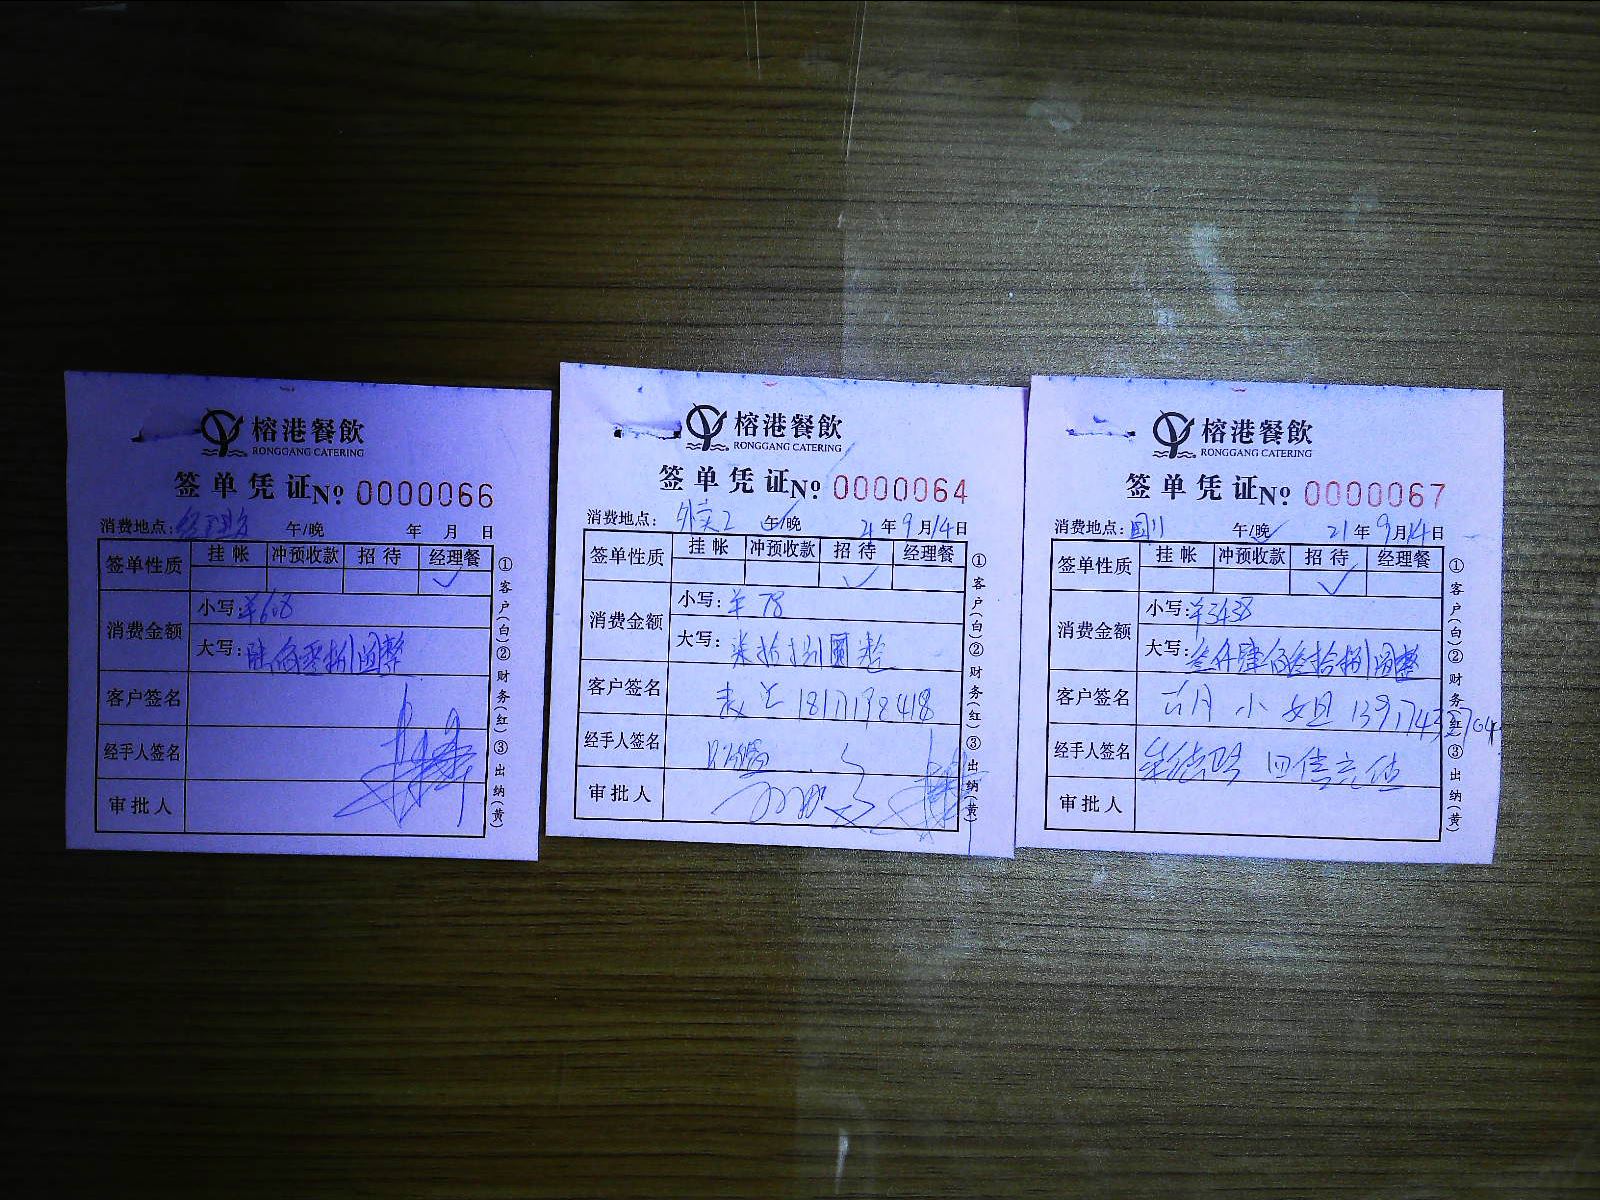 榕港餐飲
RONGGANG CATERING
签单凭证 Nº 0000066
消费地点: 午/晚 年 月 日
签单性质 挂帐 冲预收款 招待 经理餐
✓
消费金额 小写: ¥608
大写: 陆佰零捌圆整
客户签名
经手人签名
审批人
①客户(白)②财务(红)③出纳(黄)
榕港餐飲
RONGGANG CATERING
签单凭证 Nº 0000064
消费地点: 外卖2 午/晚 21年9月14日
签单性质 挂帐 冲预收款 招待 经理餐
✓
消费金额 小写: ¥78
大写: 柒拾捌圆整
客户签名
经手人签名
审批人
①客户(白)②财务(红)③出纳(黄)
榕港餐飲
RONGGANG CATERING
签单凭证 Nº 0000067
消费地点: 午/晚 21年9月14日
签单性质 挂帐 冲预收款 招待 经理餐
✓
消费金额 小写: ¥3438
大写: 叁仟肆佰叁拾捌圆整
客户签名 古月小姐
经手人签名
审批人
①客户(白)②财务(红)③出纳(黄)